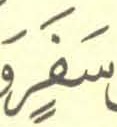 سَفَرٍ وَ